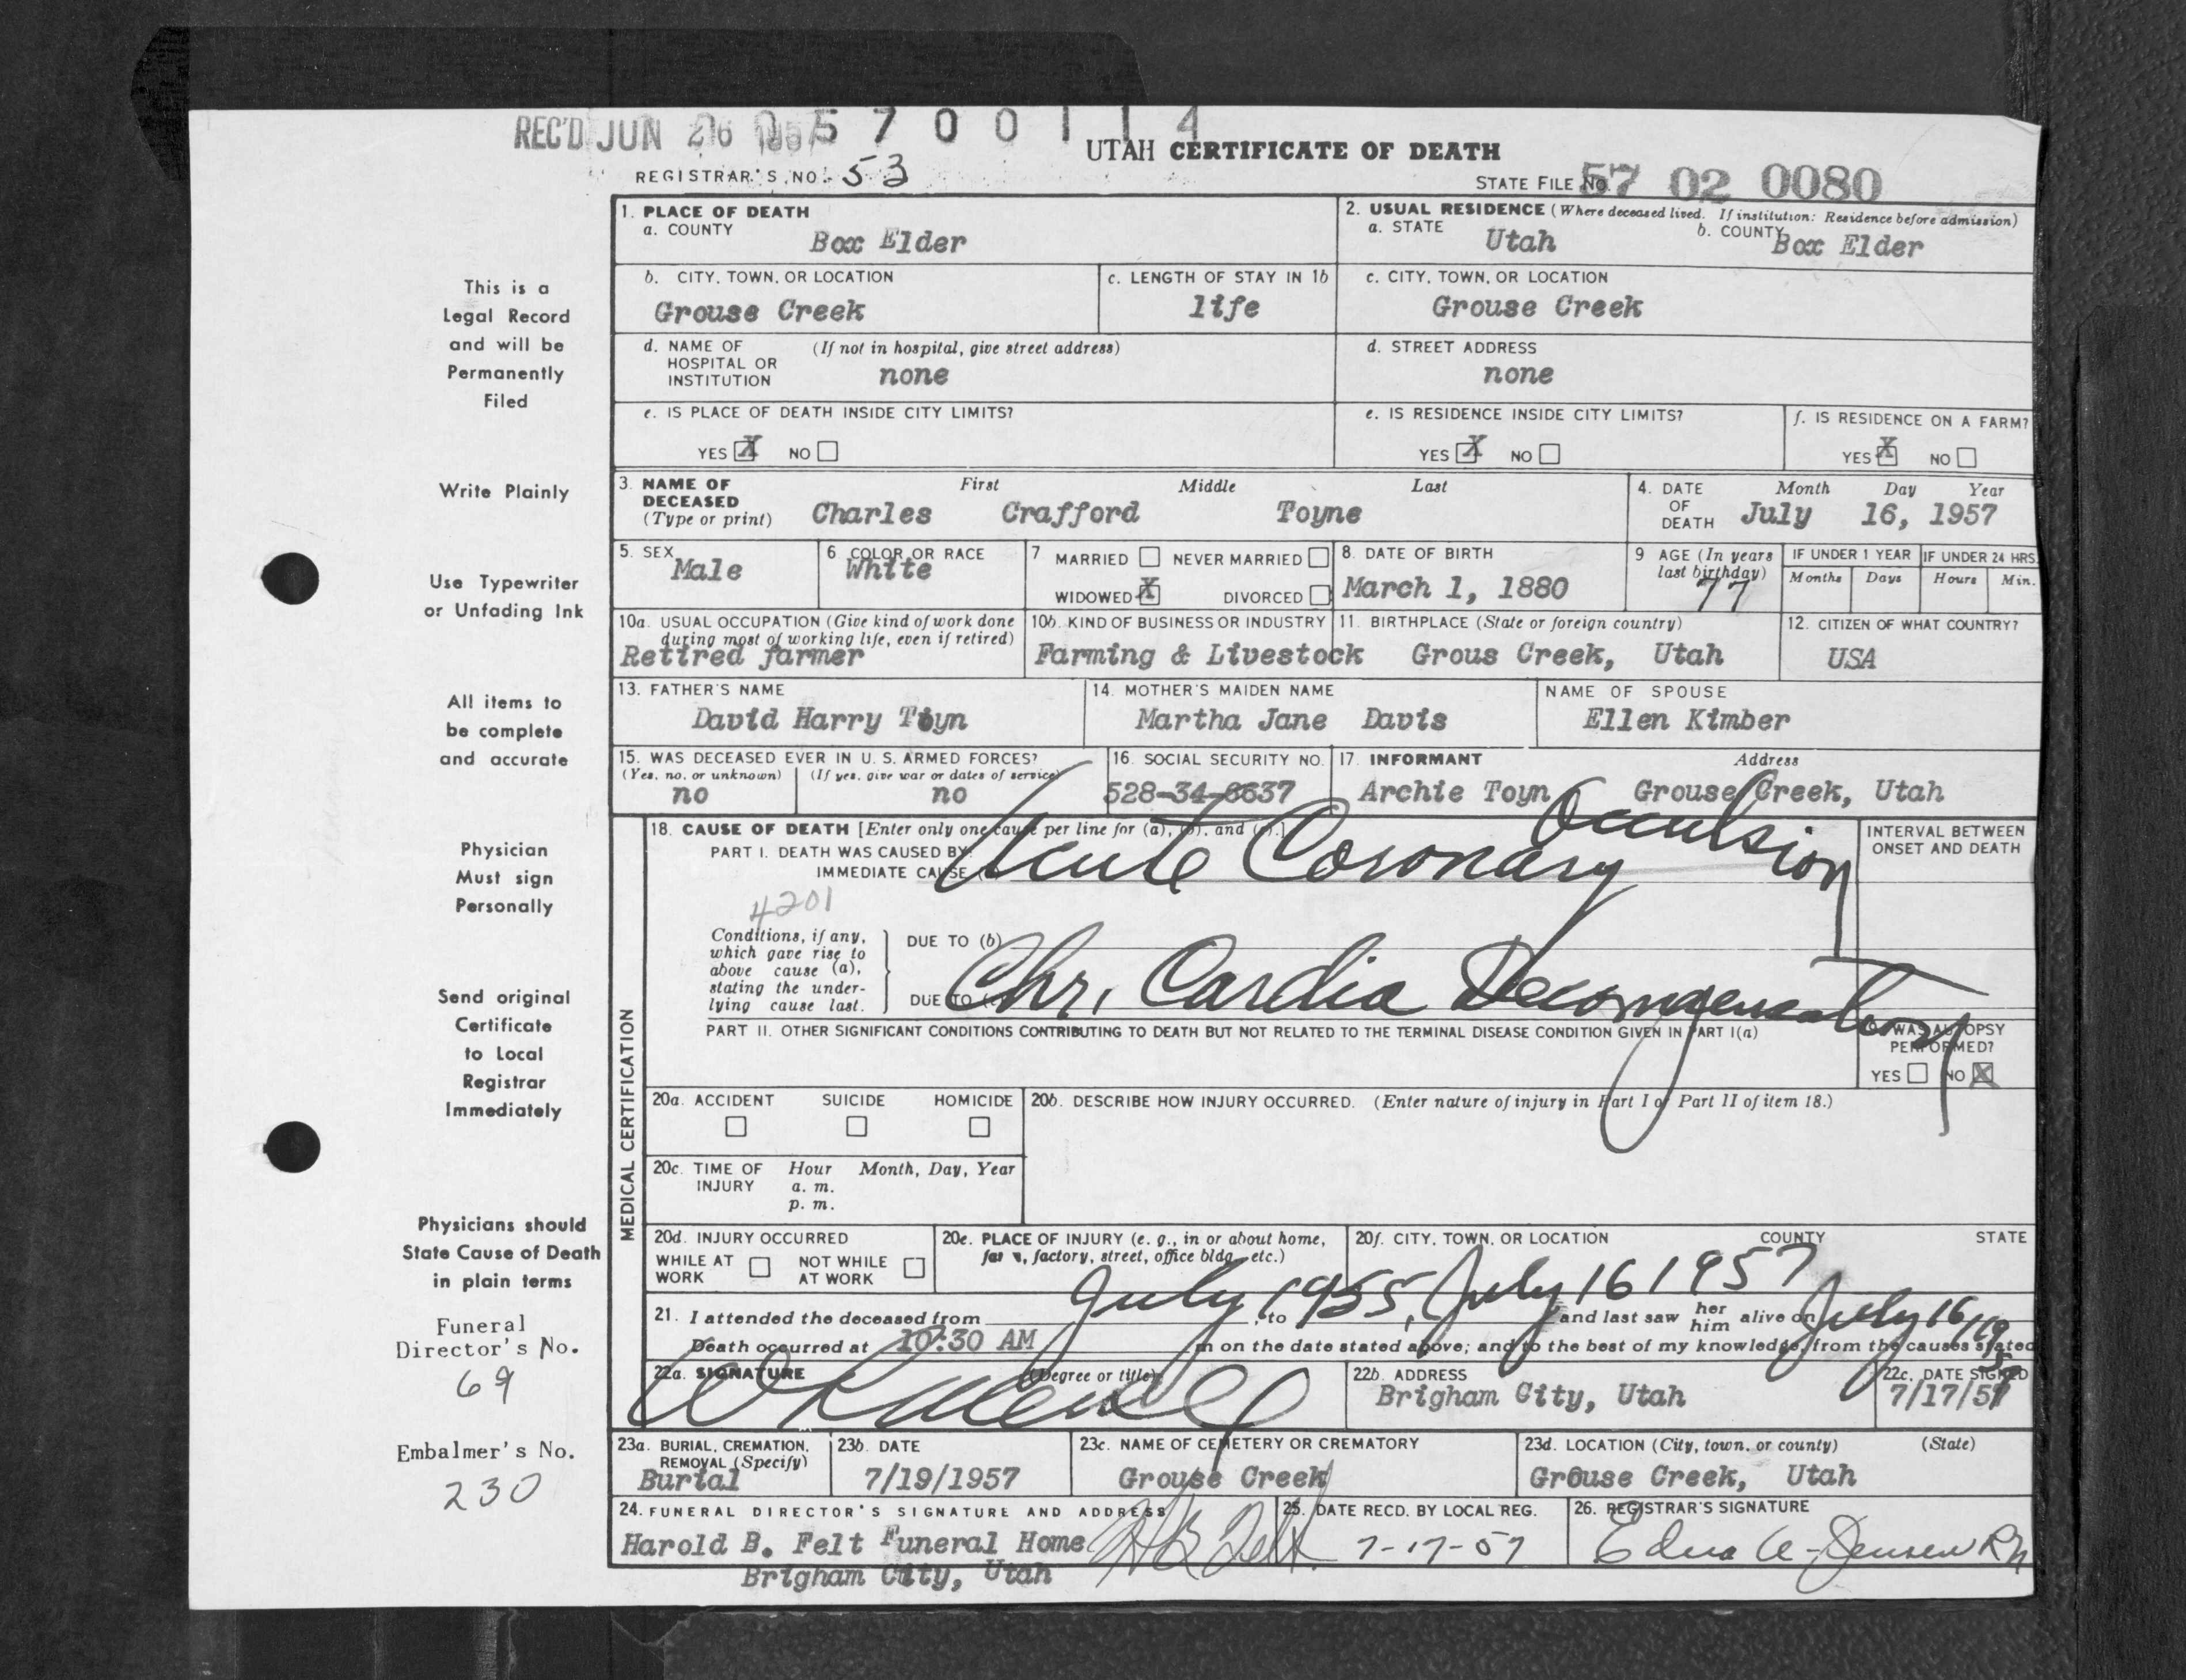 REC'D JUN 26 1957 5 7 0 0 1 1 4
UTAH CERTIFICATE OF DEATH
REGISTRAR'S NO. 53
STATE FILE No. 57 02 0080
This is a
Legal Record
and will be
Permanently
Filed
Write Plainly
Use Typewriter
or Unfading Ink
All items to
be complete
and accurate
Physician
Must sign
Personally
Send original
Certificate
to Local
Registrar
Immediately
Physicians should
State Cause of Death
in plain terms
Funeral
Director's No.
69
Embalmer's No.
230
1. PLACE OF DEATH
a. COUNTY
Box Elder
2. USUAL RESIDENCE (Where deceased lived. If institution: Residence before admission)
a. STATE Utah b. COUNTY Box Elder
b. CITY, TOWN, OR LOCATION
Grouse Creek
c. LENGTH OF STAY IN 1b
life
c. CITY, TOWN, OR LOCATION
Grouse Creek
d. NAME OF (If not in hospital, give street address)
HOSPITAL OR
INSTITUTION none
d. STREET ADDRESS
none
e. IS PLACE OF DEATH INSIDE CITY LIMITS?
YES X NO
e. IS RESIDENCE INSIDE CITY LIMITS?
YES X NO
f. IS RESIDENCE ON A FARM?
YES X NO
3. NAME OF First Middle Last
DECEASED
(Type or print) Charles Crafford Toyne
4. DATE Month Day Year
OF
DEATH July 16, 1957
5. SEX
Male
6 COLOR OR RACE
White
7 MARRIED NEVER MARRIED
WIDOWED X DIVORCED
8. DATE OF BIRTH
March 1, 1880
9 AGE (In years
last birthday)
77
IF UNDER 1 YEAR
Months Days
IF UNDER 24 HRS.
Hours Min.
10a. USUAL OCCUPATION (Give kind of work done
during most of working life, even if retired)
Retired farmer
10b. KIND OF BUSINESS OR INDUSTRY
Farming & Livestock
11. BIRTHPLACE (State or foreign country)
Grous Creek, Utah
12. CITIZEN OF WHAT COUNTRY?
USA
13. FATHER'S NAME
David Harry Toyn
14. MOTHER'S MAIDEN NAME
Martha Jane Davis
NAME OF SPOUSE
Ellen Kimber
15. WAS DECEASED EVER IN U. S. ARMED FORCES?
(Yes, no, or unknown) (If yes, give war or dates of service)
no no
16. SOCIAL SECURITY NO.
528-34-6637
17. INFORMANT Address
Archie Toyn Grouse Creek, Utah
MEDICAL CERTIFICATION
18. CAUSE OF DEATH [Enter only one cause per line for (a), (b), and (c).]
PART I. DEATH WAS CAUSED BY:
IMMEDIATE CAUSE (a) Acute Coronary Occulsion
INTERVAL BETWEEN
ONSET AND DEATH
4201
Conditions, if any,
which gave rise to
above cause (a),
stating the under-
lying cause last.
DUE TO (b)
DUE TO (c) Chr. Cardia Decompensation
PART II. OTHER SIGNIFICANT CONDITIONS CONTRIBUTING TO DEATH BUT NOT RELATED TO THE TERMINAL DISEASE CONDITION GIVEN IN PART I(a)
19. WAS AUTOPSY
PERFORMED?
YES NO X
20a. ACCIDENT SUICIDE HOMICIDE
20b. DESCRIBE HOW INJURY OCCURRED. (Enter nature of injury in Part I or Part II of item 18.)
20c. TIME OF Hour Month, Day, Year
INJURY a. m.
p. m.
20d. INJURY OCCURRED
WHILE AT NOT WHILE
WORK AT WORK
20e. PLACE OF INJURY (e. g., in or about home,
farm, factory, street, office bldg., etc.)
20f. CITY, TOWN, OR LOCATION COUNTY STATE
21. I attended the deceased from July 1955, to July 16 1957 and last saw her him alive on July 16 1957
Death occurred at 10:30 AM m on the date stated above; and to the best of my knowledge, from the causes stated
22a. SIGNATURE (Degree or title)
22b. ADDRESS
Brigham City, Utah
22c. DATE SIGNED
7/17/57
23a. BURIAL, CREMATION,
REMOVAL (Specify)
Burial
23b. DATE
7/19/1957
23c. NAME OF CEMETERY OR CREMATORY
Grouse Creek
23d. LOCATION (City, town, or county) (State)
Grouse Creek, Utah
24. FUNERAL DIRECTOR'S SIGNATURE AND ADDRESS
Harold B. Felt Funeral Home HB Felt
Brigham City, Utah
25. DATE RECD. BY LOCAL REG.
7-17-57
26. REGISTRAR'S SIGNATURE
Edna A. Jensen RN